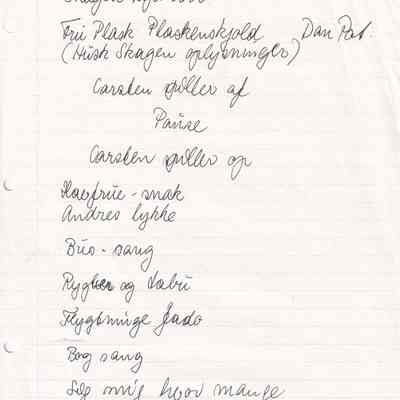 Frü Plask Plaskenskjold Dan Pat.
(Husk Skagen oplysninger)
Carsten spiller af
Pause
Carsten spiller op
Havfrue - snak
Andres lykke
Bus - sang
Rygter og
Flygtninge fado
Bog sang
Sig mig hvor mange